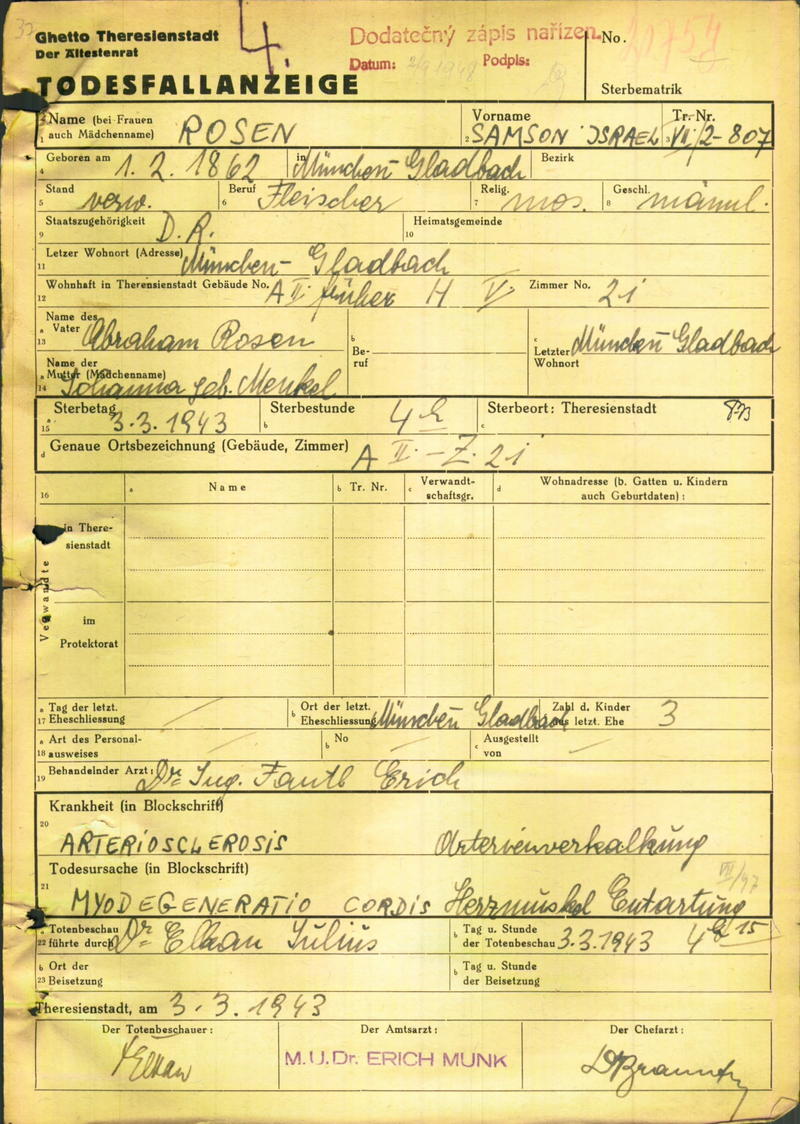 Ghetto Theresienstadt
Der Ältestenrat
4.
Dodatečný zápis nařízen.
Datum: Podpis:
No.
TODESFALLANZEIGE
Sterbematrik
Name (bei Frauen auch Mädchenname) ROSEN
2 Vorname SAMSON ISRAEL
3 Tr. Nr. VII/2-807
4 Geboren am 1. 2. 1862 in München-Gladbach Bezirk
5 Stand verw. 6 Beruf Fleischer 7 Relig. mos. 8 Geschl. männl.
9 Staatszugehörigkeit D. R. 10 Heimatsgemeinde
11 Letzer Wohnort (Adresse) München-Gladbach
12 Wohnhaft in Theresienstadt Gebäude No. A II. früher H V. Zimmer No. 21
13 a Name des Vater Abraham Rosen
b Beruf
c Letzter Wohnort München Gladbach
14 a Name der Mutter (Mädchenname) Johanna geb. Menkel
15 a Sterbetag 3.3.1943 b Sterbestunde 4 h c Sterbeort: Theresienstadt
d Genaue Ortsbezeichnung (Gebäude, Zimmer) A II. - Z. 21
16 a Name b Tr. Nr. c Verwandtschaftsgr. d Wohnadresse (b. Gatten u. Kindern auch Geburtdaten):
Verwandte
in Theresienstadt
im Protektorat
17 a Tag der letzt. Eheschliessung b Ort der letzt. Eheschliessung München Gladbach Zahl d. Kinder aus letzt. Ehe 3
18 a Art des Personalausweises b No c Ausgestellt von
19 Behandelnder Arzt: Dr. Ing. Fantl Erich
20 Krankheit (in Blockschrift)
ARTERIOSCLEROSIS Arterienverkalkung
21 Todesursache (in Blockschrift)
MYODEGENERATIO CORDIS Herzmuskel Entartung
22 a Totenbeschau führte durch Dr. Elkan Julius b Tag u. Stunde der Totenbeschau 3.3.1943 4 h 15
23 b Ort der Beisetzung b Tag u. Stunde der Beisetzung
Theresienstadt, am 3. 3. 1943
Der Totenbeschauer: Der Amtsarzt: Der Chefarzt:
Elkan M.U.Dr. ERICH MUNK